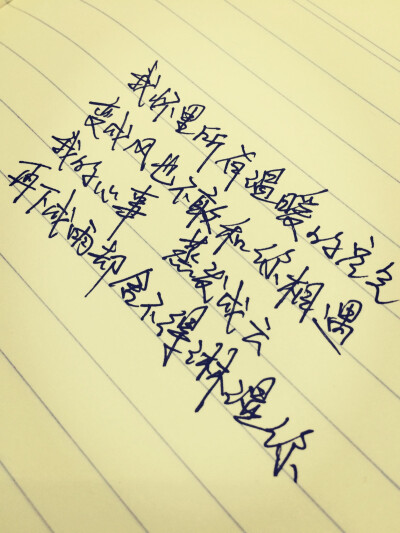 我怀里所有温暖的空气
变成风也不敢和你相遇
我的心事 蒸发成云
再下成雨却舍不得淋湿你